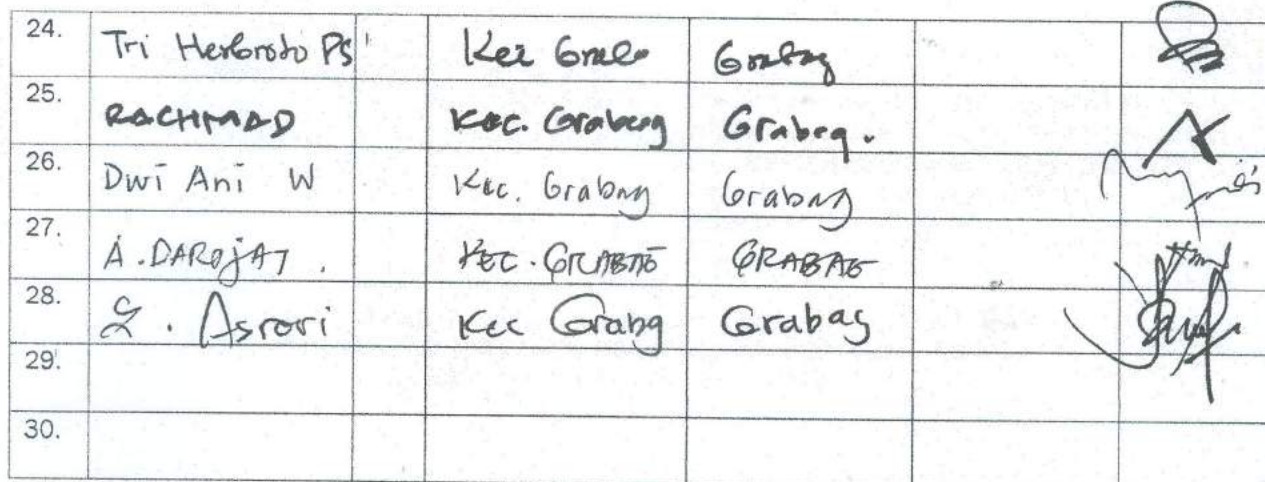 24. Tri Herbroto PS Kec Grabag Grabag
25. RACHMAD Kec. Grabag Grabag.
26. Dwi Ani W Kec. Grabag Grabag
27. A. DAROJAT. KEC. GRABAG GRABAG
28. S. Asrori Kec Grabag Grabag
29.
30.